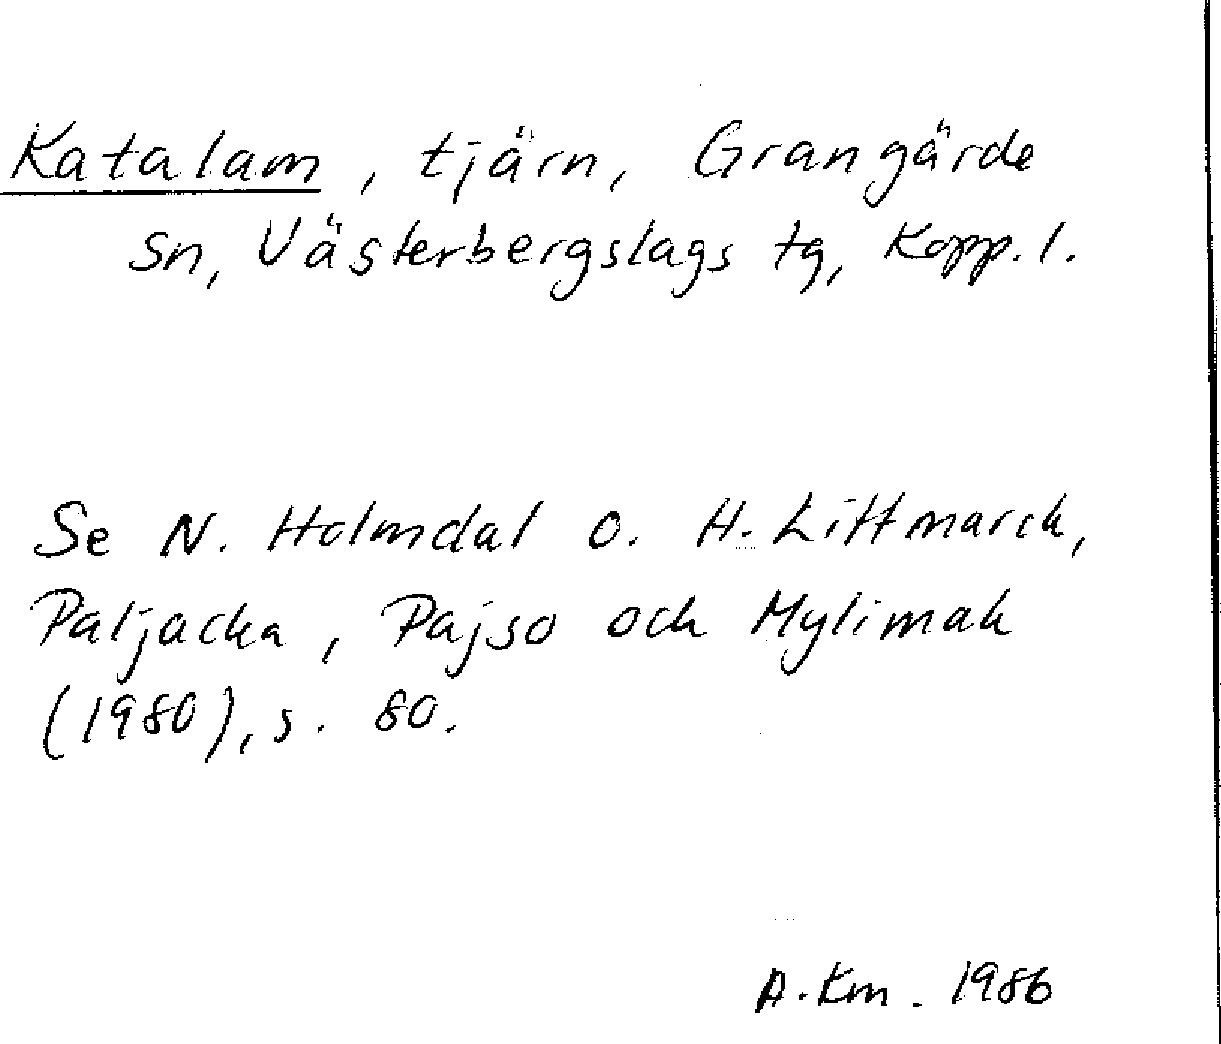 Katalam, tjärn, Grangärde
sn, Västerbergslags tg, Kopp. l.
Se N. Holmdal o. H. Littmarck,
Paljacka, Pajso och Mylimak
(1980), s. 80.
A. Km. 1986